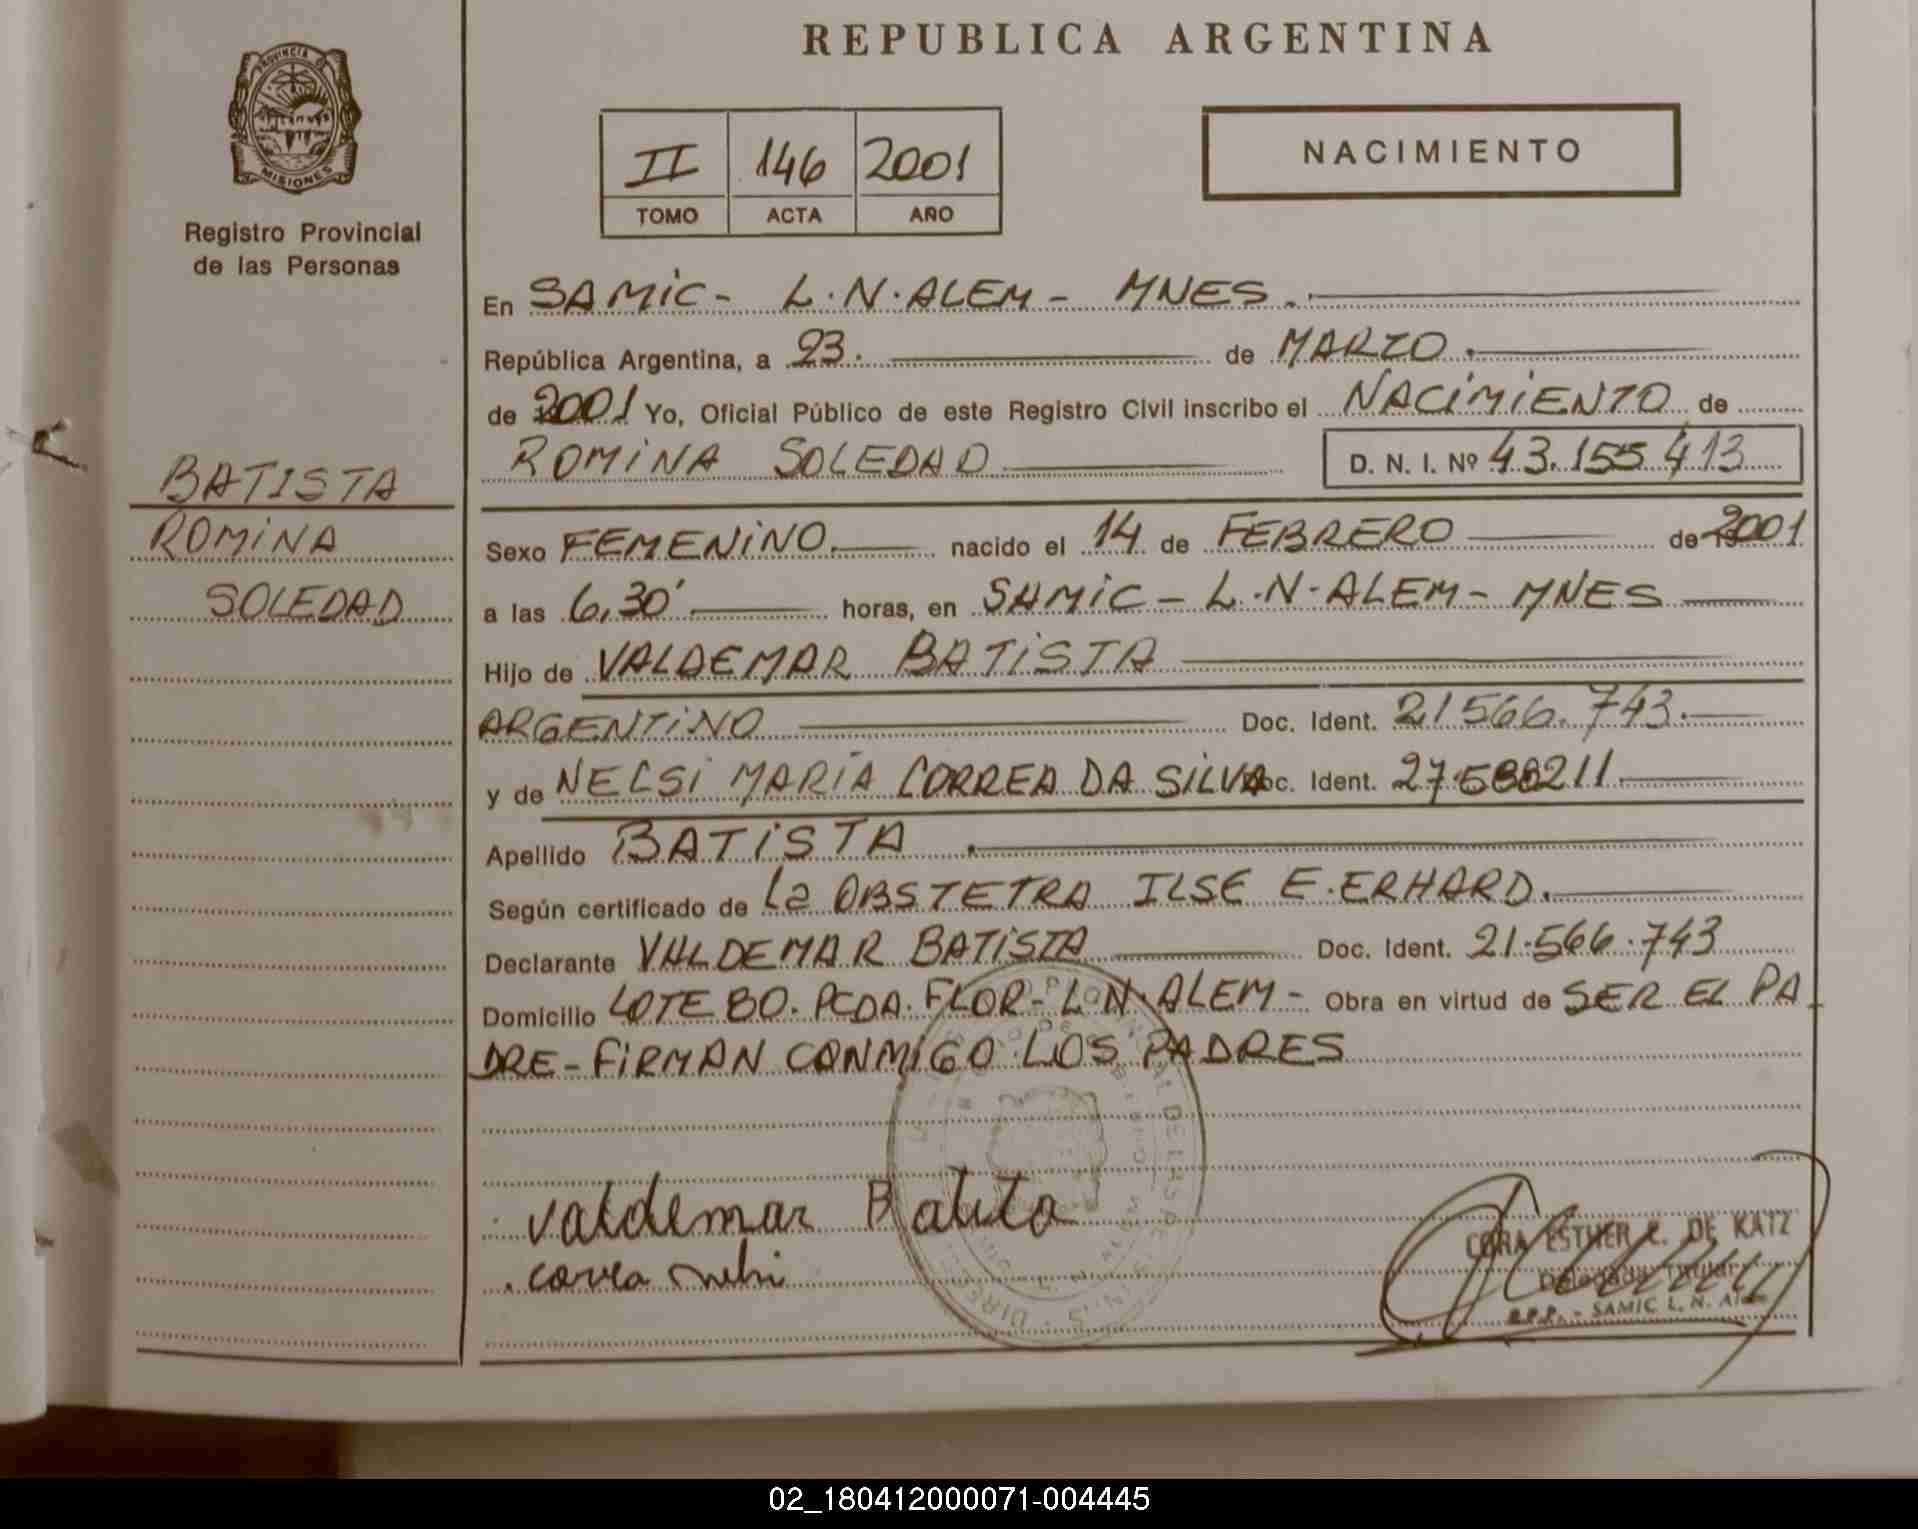 REPUBLICA ARGENTINA
PROVINCIA DE
MISIONES
Registro Provincial
de las Personas
II 146 2001
TOMO ACTA AÑO
NACIMIENTO
En SAMIC - L.N.ALEM - MNES.
República Argentina, a 23. de MARZO.
de 2001 Yo, Oficial Público de este Registro Civil inscribo el NACIMIENTO de
ROMINA SOLEDAD D. N. I. Nº 43.155.413
BATISTA
ROMINA
SOLEDAD
Sexo FEMENINO nacido el 14 de FEBRERO de 2001
a las 6,30' horas, en SAMIC - L.N.ALEM - MNES
Hijo de VALDEMAR BATISTA
ARGENTINO Doc. Ident. 21566.743.
y de NELSI MARIA CORREA DA SILVA Doc. Ident. 27.588211
Apellido BATISTA.
Según certificado de La OBSTETRA ILSE E. ERHARD.
Declarante VALDEMAR BATISTA Doc. Ident. 21.566.743
Domicilio LOTE 80. PCDA. FLOR - L.N.ALEM - Obra en virtud de SER EL PA
DRE - FIRMAN CONMIGO LOS PADRES
Valdemar Batista
correa
CORA ESTHER C. DE KATZ
Delegada Titular
R.P.P. - SAMIC L. N. Alem
02_180412000071-004445